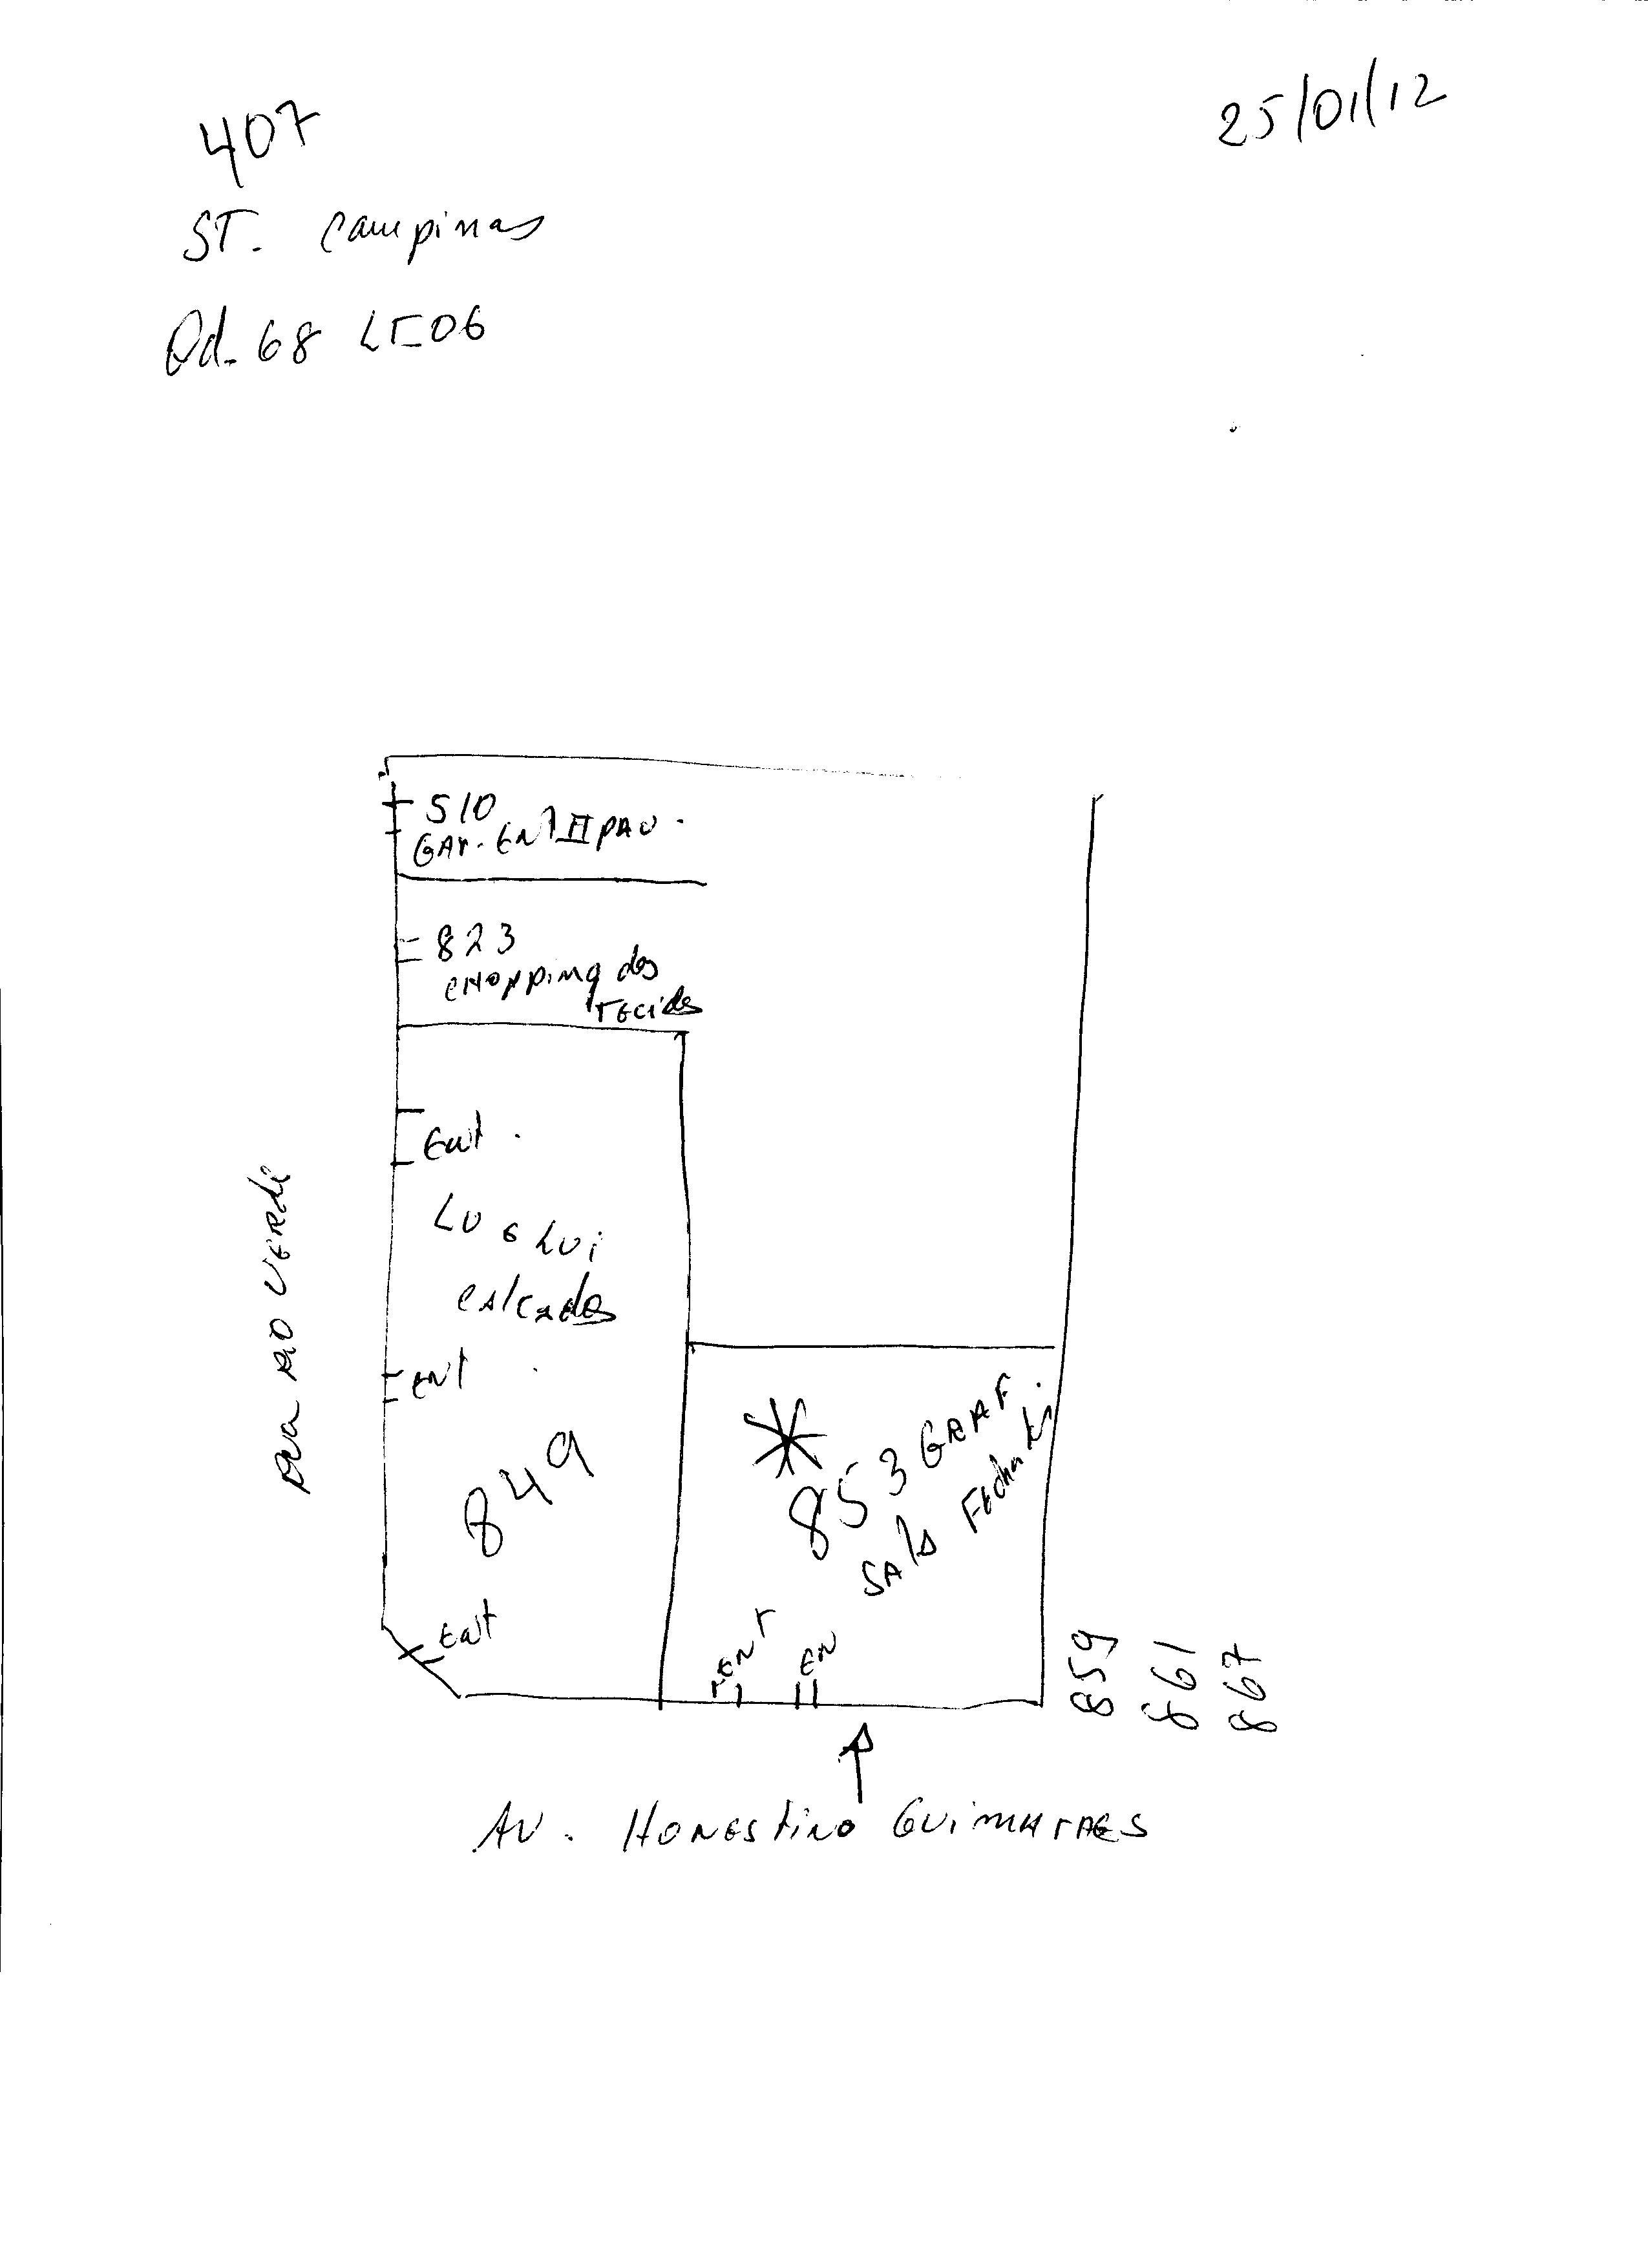 407
25/01/12
ST. Campinas
Qd. 68 Lt 06
S/O
GAr. Ent II PAV.
823
shopping dos
TECidos
Ent.
LU e LUi
cAlcados
Ent
849
Ent
RUA RIO VERde
853 GRAF.
SAlA Fecha
ENT
EN
859
861
867
AV. HONEStiNO GUiMArAES